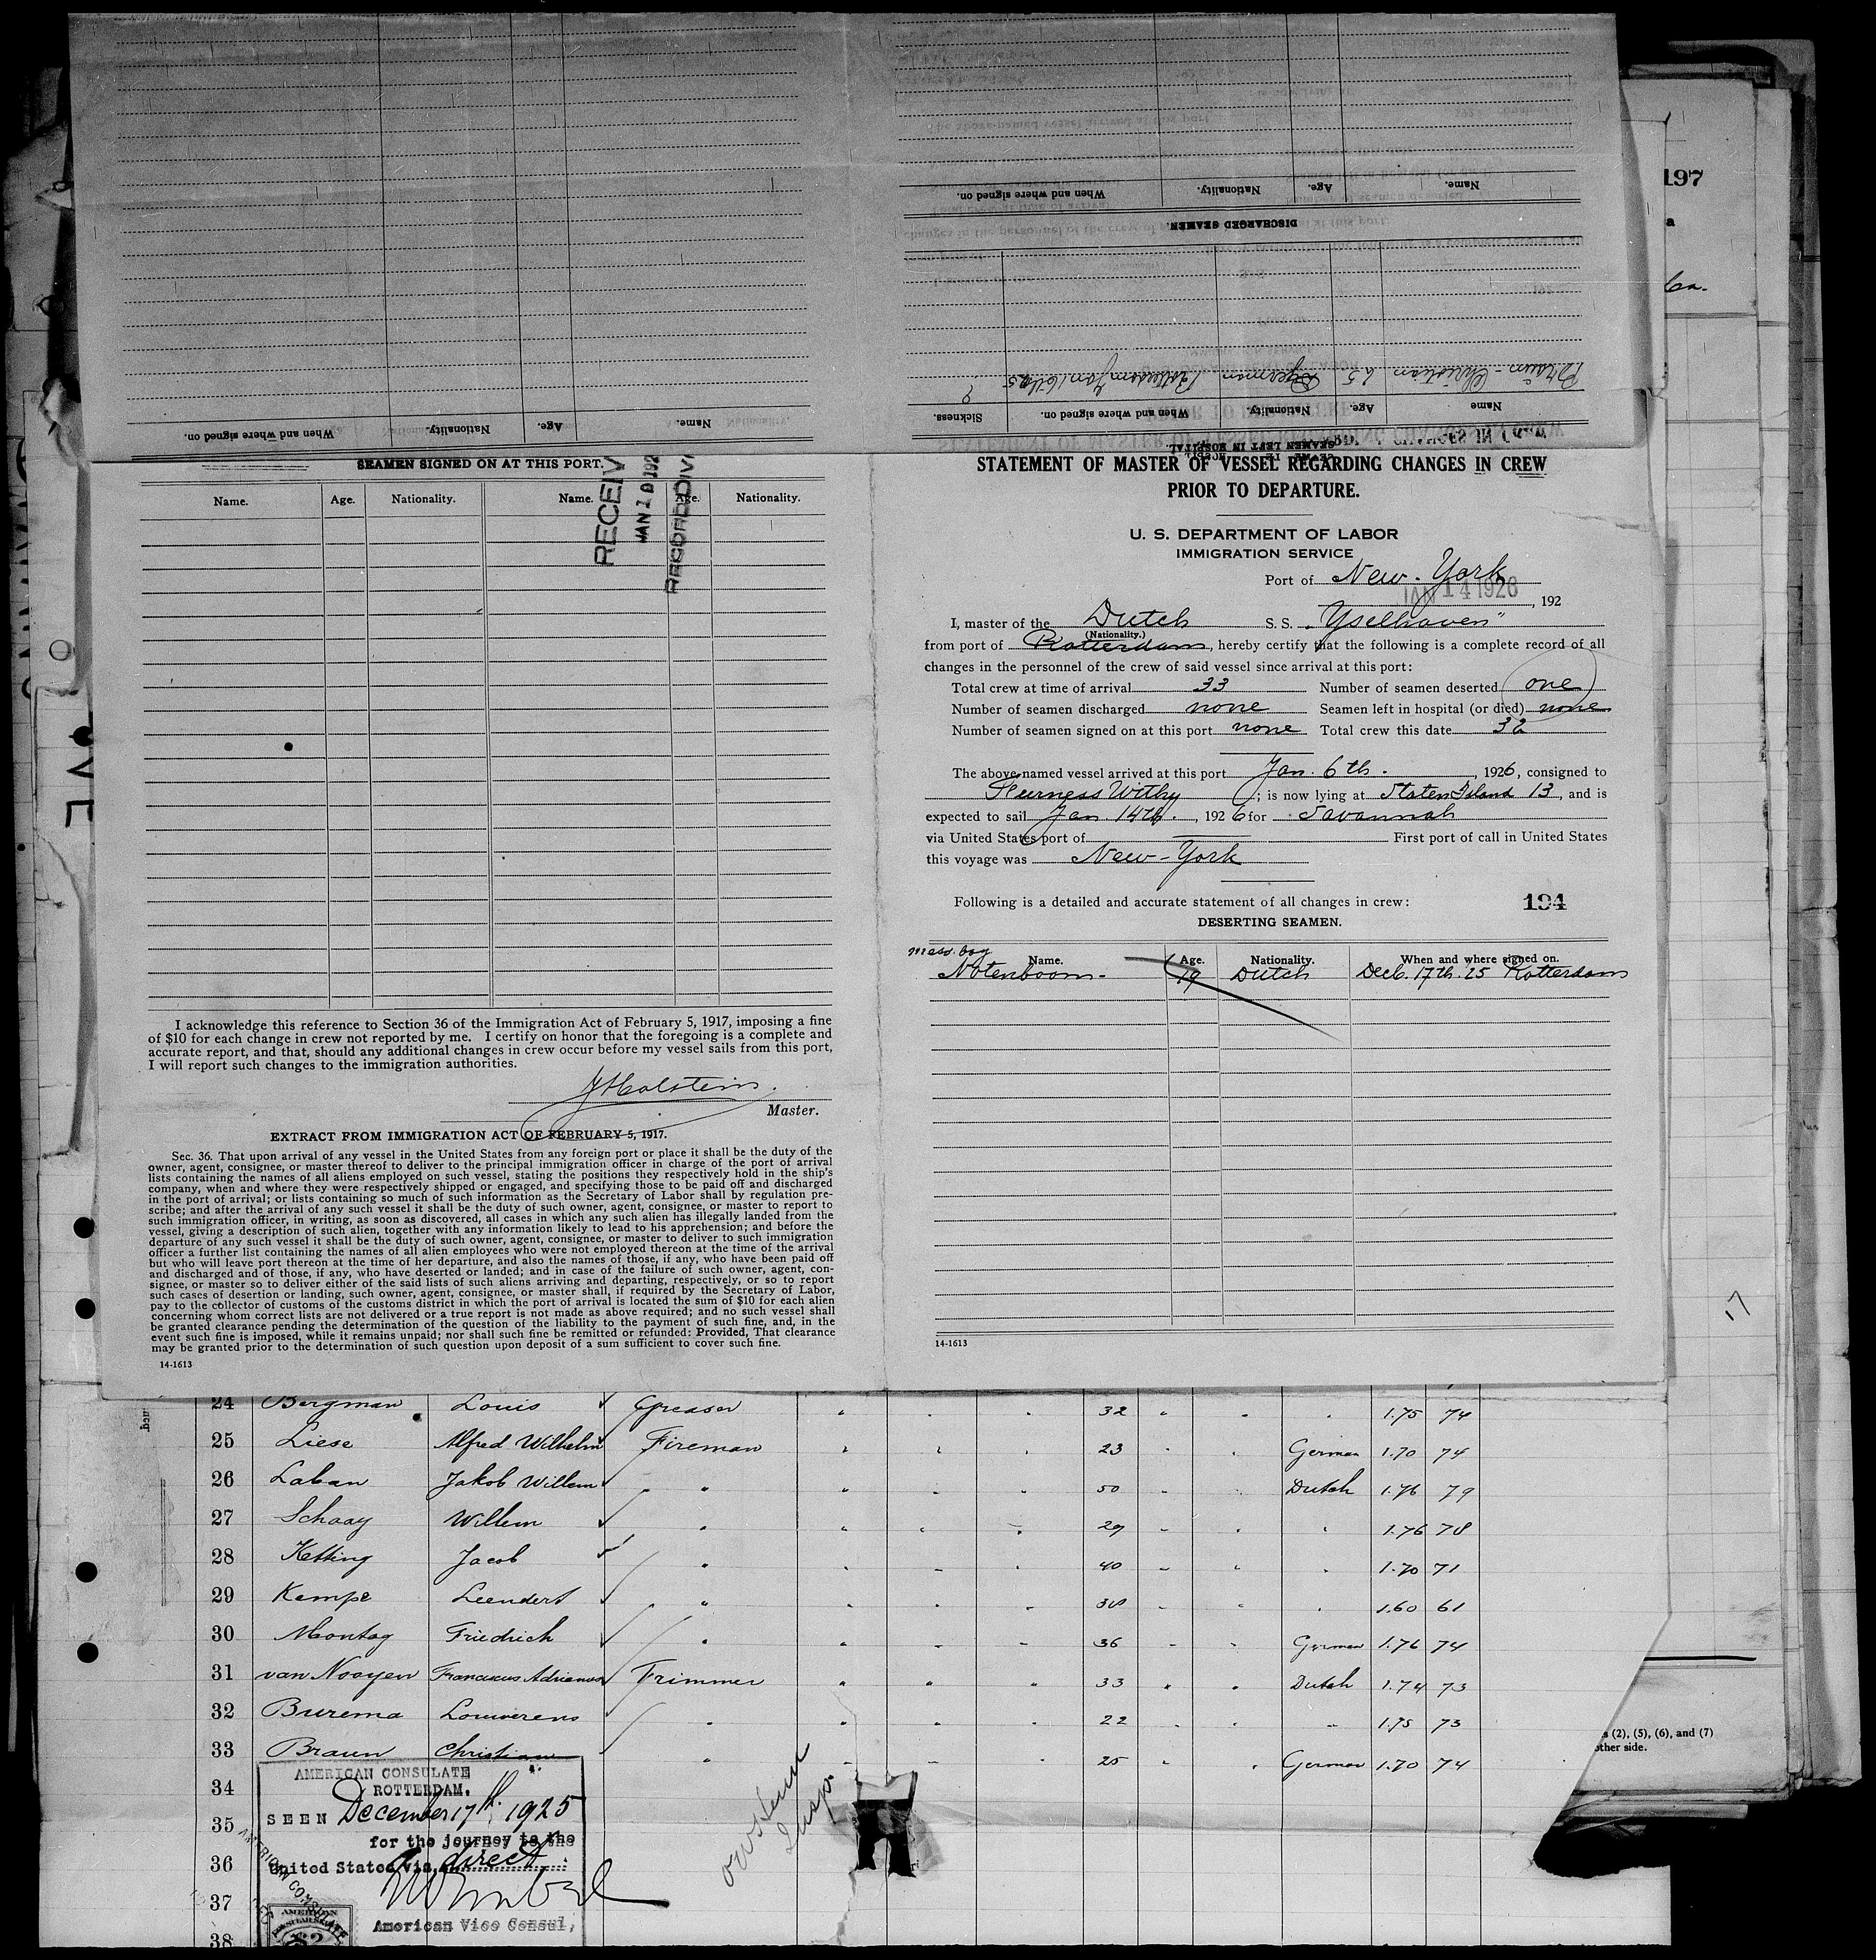 When and where signed on.
Nationality.
Age.
Name.
When and where signed on.
Nationality.
Age.
Name.
DISCHARGED SEAMEN.
Christian
German
Sickness.
When and where signed on.
Nationality.
Age.
Name
SEAMEN LEFT IN HOSPITAL
197
a
Co.
SEAMEN SIGNED ON AT THIS PORT.
Name. Age. Nationality. Name. Age. Nationality.
RECEIV
JAN
RECORD DIV
I acknowledge this reference to Section 36 of the Immigration Act of February 5, 1917, imposing a fine
of $10 for each change in crew not reported by me. I certify on honor that the foregoing is a complete and
accurate report, and that, should any additional changes in crew occur before my vessel sails from this port,
I will report such changes to the immigration authorities.
JHolstein.
Master.
EXTRACT FROM IMMIGRATION ACT OF FEBRUARY 5, 1917.
Sec. 36. That upon arrival of any vessel in the United States from any foreign port or place it shall be the duty of the
owner, agent, consignee, or master thereof to deliver to the principal immigration officer in charge of the port of arrival
lists containing the names of all aliens employed on such vessel, stating the positions they respectively hold in the ship's
company, when and where they were respectively shipped or engaged, and specifying those to be paid off and discharged
in the port of arrival; or lists containing so much of such information as the Secretary of Labor shall by regulation pre-
scribe; and after the arrival of any such vessel it shall be the duty of such owner, agent, consignee, or master to report to
such immigration officer, in writing, as soon as discovered, all cases in which any such alien has illegally landed from the
vessel, giving a description of such alien, together with any information likely to lead to his apprehension; and before the
departure of any such vessel it shall be the duty of such owner, agent, consignee, or master to deliver to such immigration
officer a further list containing the names of all alien employees who were not employed thereon at the time of the arrival
but who will leave port thereon at the time of her departure, and also the names of those, if any, who have been paid off
and discharged and of those, if any, who have deserted or landed; and in case of the failure of such owner, agent, con-
signee, or master so to deliver either of the said lists of such aliens arriving and departing, respectively, or so to report
such cases of desertion or landing, such owner, agent, consignee, or master shall, if required by the Secretary of Labor,
pay to the collector of customs of the customs district in which the port of arrival is located the sum of $10 for each alien
concerning whom correct lists are not delivered or a true report is not made as above required; and no such vessel shall
be granted clearance pending the determination of the question of the liability to the payment of such fine, and, in the
event such fine is imposed, while it remains unpaid; nor shall such fine be remitted or refunded: Provided, That clearance
may be granted prior to the determination of such question upon deposit of a sum sufficient to cover such fine.
14-1613
STATEMENT OF MASTER OF VESSEL REGARDING CHANGES IN CREW
PRIOR TO DEPARTURE.
U. S. DEPARTMENT OF LABOR
IMMIGRATION SERVICE
Port of New-York
JAN 14 1926, 192
I, master of the Dutch S. S. "Yselhaven"
(Nationality.)
from port of Rotterdam, hereby certify that the following is a complete record of all
changes in the personnel of the crew of said vessel since arrival at this port:
Total crew at time of arrival 33 Number of seamen deserted one
Number of seamen discharged none Seamen left in hospital (or died) none
Number of seamen signed on at this port none Total crew this date 32
The above-named vessel arrived at this port Jan. 6th. , 1926, consigned to
Furness Withy ; is now lying at Staten Island 13, and is
expected to sail Jan. 14th. , 1926 for Savannah
via United States port of First port of call in United States
this voyage was New-York
Following is a detailed and accurate statement of all changes in crew: 194
DESERTING SEAMEN.
mess. boy
Name. Age. Nationality. When and where signed on.
Notenboom- 19 Dutch Dec. 17th. 25 Rotterdam
14-1613
17
24 Bergman Louis Greaser 32 1.75 74
25 Liese Alfred Wilhelm Fireman 23 German 1.70 74
26 Laban Jakob Willem " 50 Dutch 1.76 79
27 Schaay Willem " 29 " 1.76 78
28 Ketting Jacob " 40 " 1.70 71
29 Kempe Leendert " 30 " 1.60 61
30 Montag Friedrich " 36 German 1.76 74
31 van Nooyen Franciscus Adrianus Trimmer 33 Dutch 1.74 73
32 Burema Louwerens " 22 " 1.75 73
33 Braun Christian " 25 German 1.70 74
34
35
36
37
38
AMERICAN CONSULATE
ROTTERDAM.
SEEN December 17th. 1925
for the journey to the
United States via direct
American Vice Consul,
AMERICAN CONSULATE
AMERICAN
$2
Insp.
s (2), (5), (6), and (7)
other side.